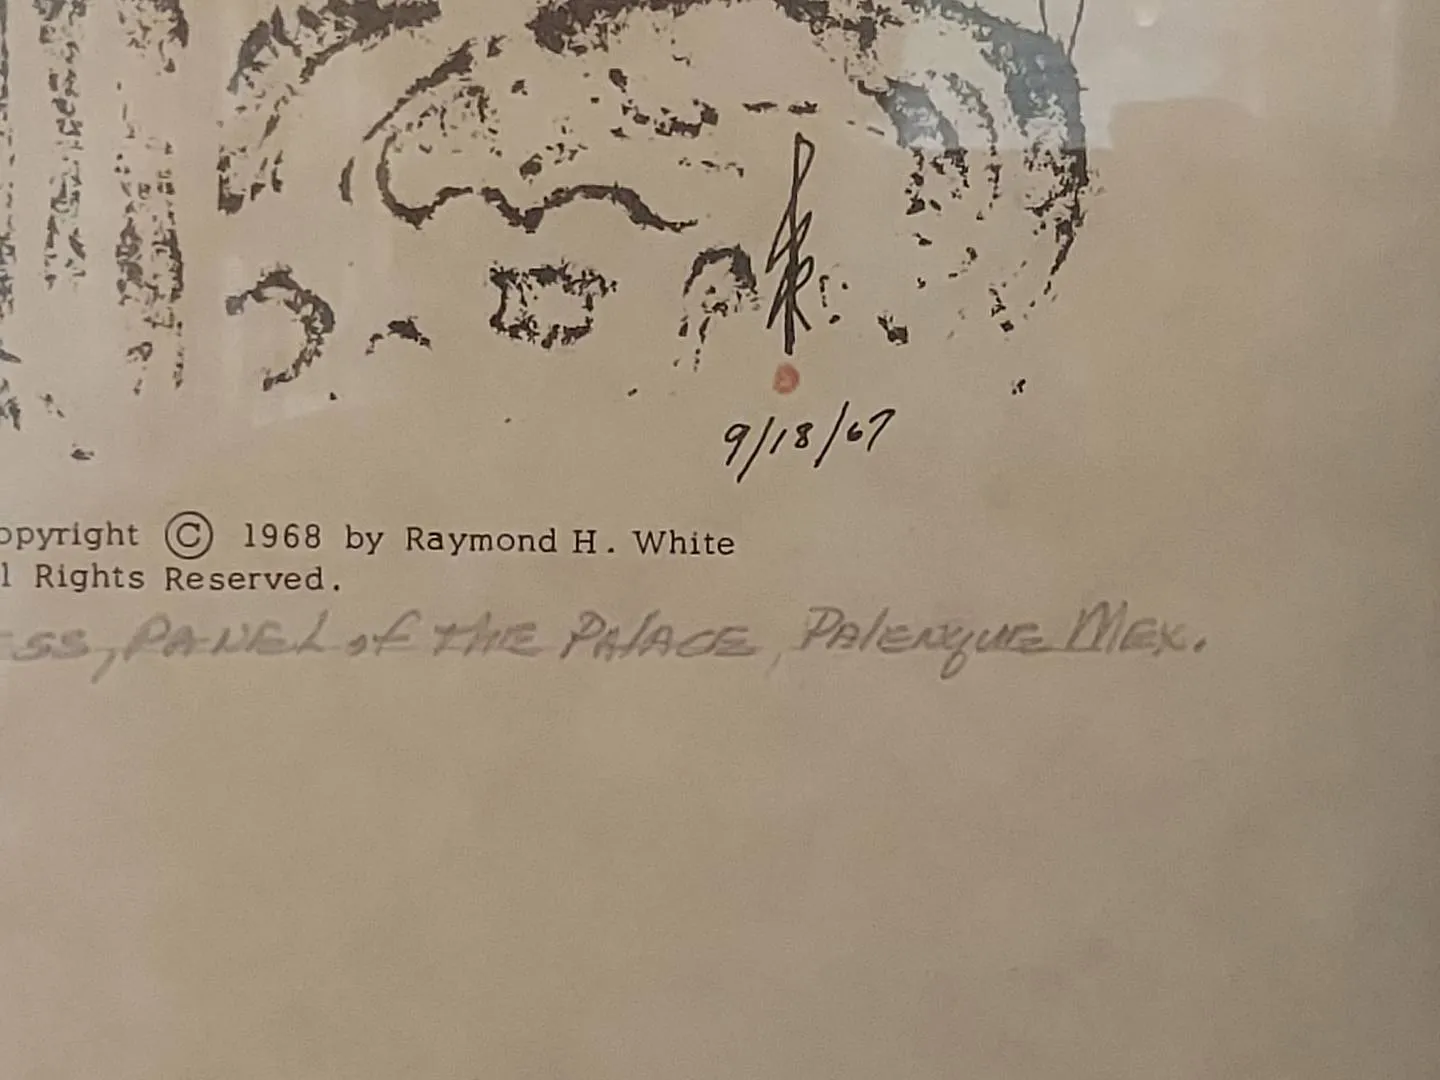 9/18/67
opyright © 1968 by Raymond H. White
l Rights Reserved.
ess, Panel of the Palace, Palenque Mex.